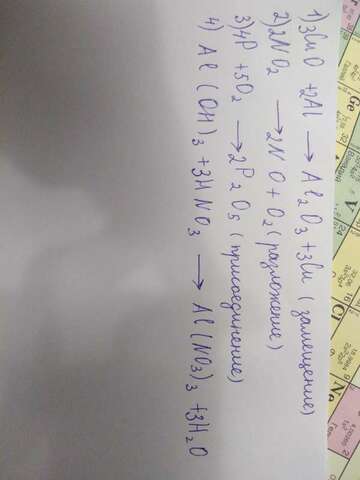 1) 3CuO + 2Al → Al₂O₃ + 3Cu (замещение)
2) 2NO₂ → 2NO + O₂ (разложение)
3) 4P + 5O₂ → 2P₂O₅ (присоединение)
4) Al(OH)₃ + 3HNO₃ → Al(NO₃)₃ + 3H₂O
Ge
V
Cl
Ne